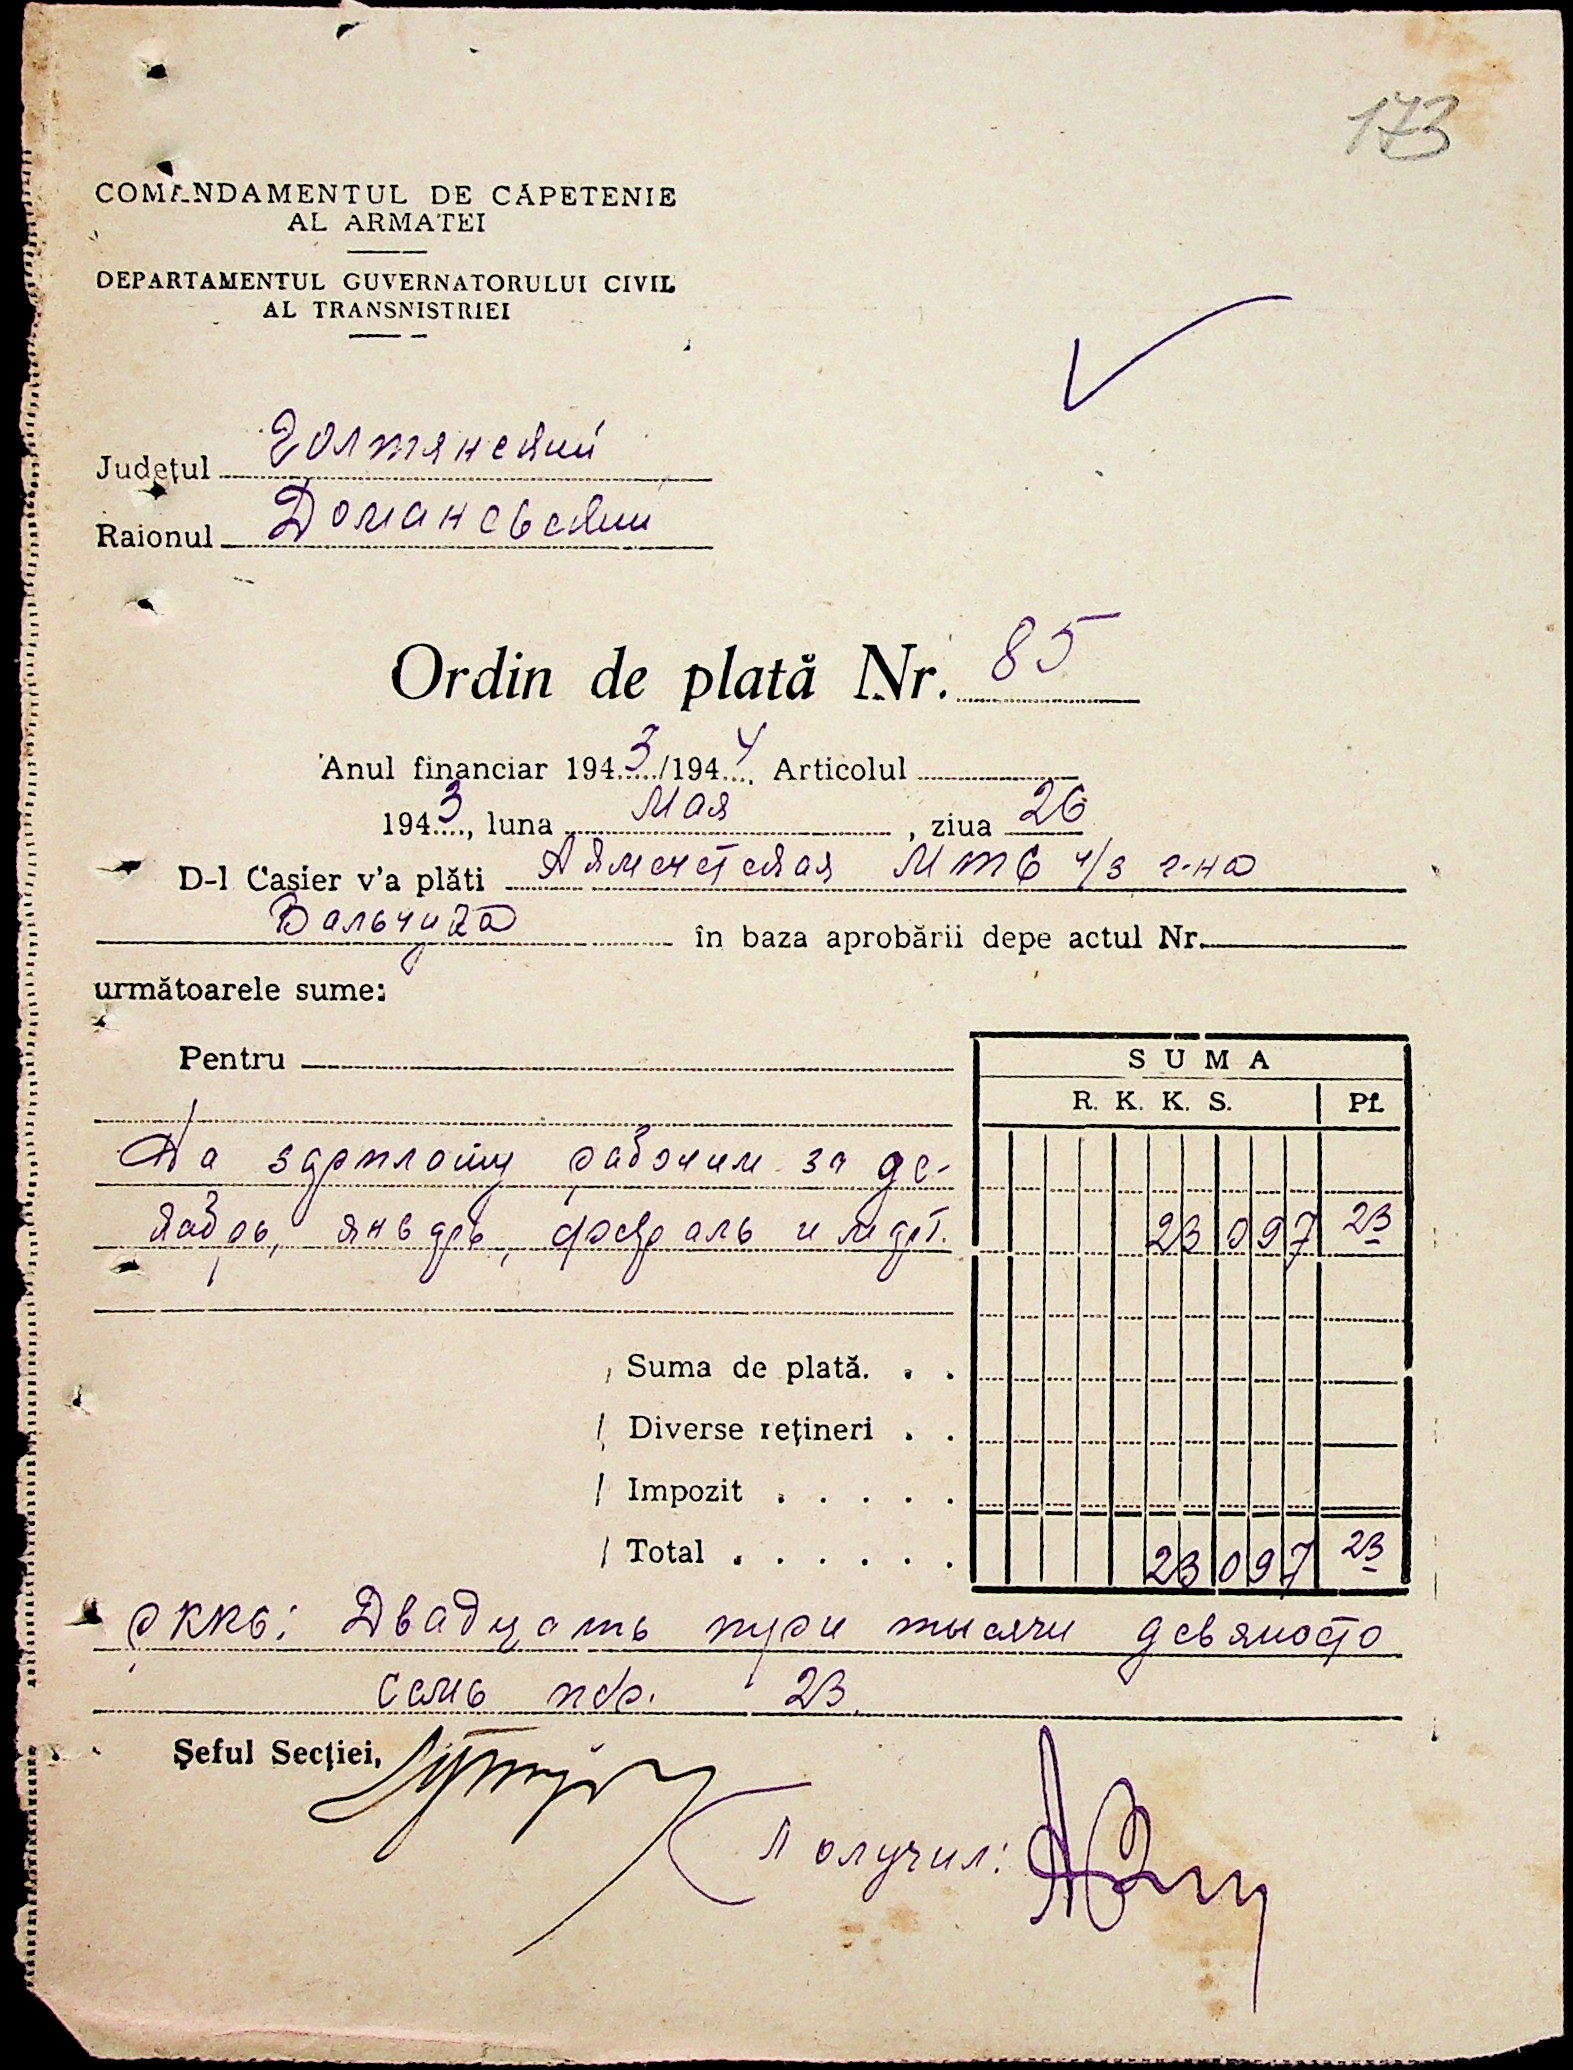 173
COMANDAMENTUL DE CĂPETENIE
AL ARMATEI
DEPARTAMENTUL GUVERNATORULUI CIVIL
AL TRANSNISTRIEI
Județul Голтянский
Raionul Доманевский
Ordin de plată Nr. 85
Anul financiar 1943/1944 Articolul
1943, luna Мая, ziua 26
D-l Casier v'a plăti Акмечетская МТС ч/з г-на
Вальчука în baza aprobării depe actul Nr.
următoarele sume:
Pentru
SUMA
R. K. K. S. Pf.
На зарплату рабочим за де-
кабрь, январь, февраль и март. 23 097 23
Suma de plată. . .
Diverse rețineri . .
Impozit . . . . .
Total . . . . . . 23 097 23
РККС: Двадцать три тысячи девяносто
семь пф. 23
Șeful Secției,
Получил: